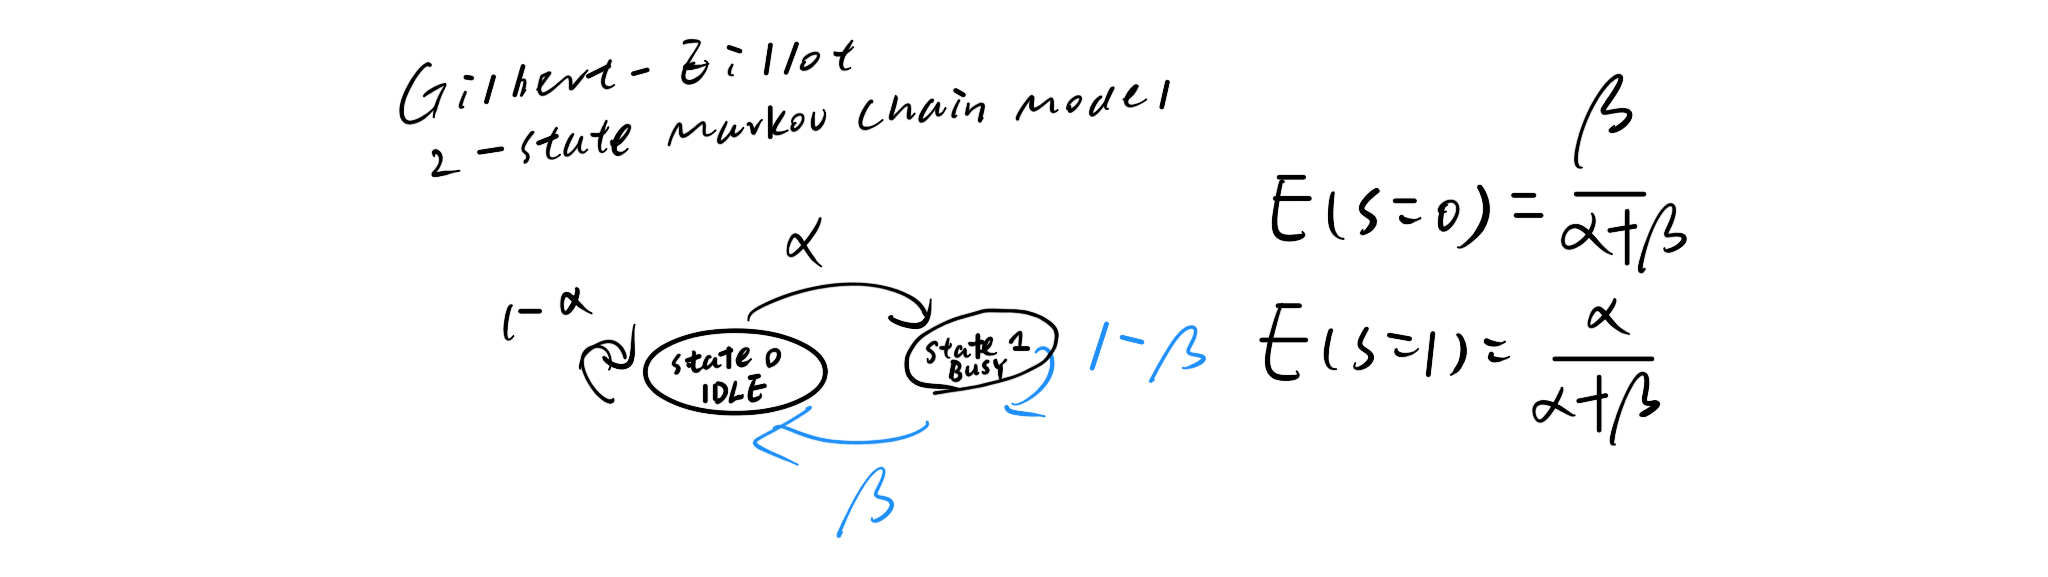 Gilbert-Eillot
2-state Markov chain model
α
1-α
state 0
IDLE
state 1
BUSY
1-β
β
E(s=0) = β/(α+β)
E(s=1) = α/(α+β)